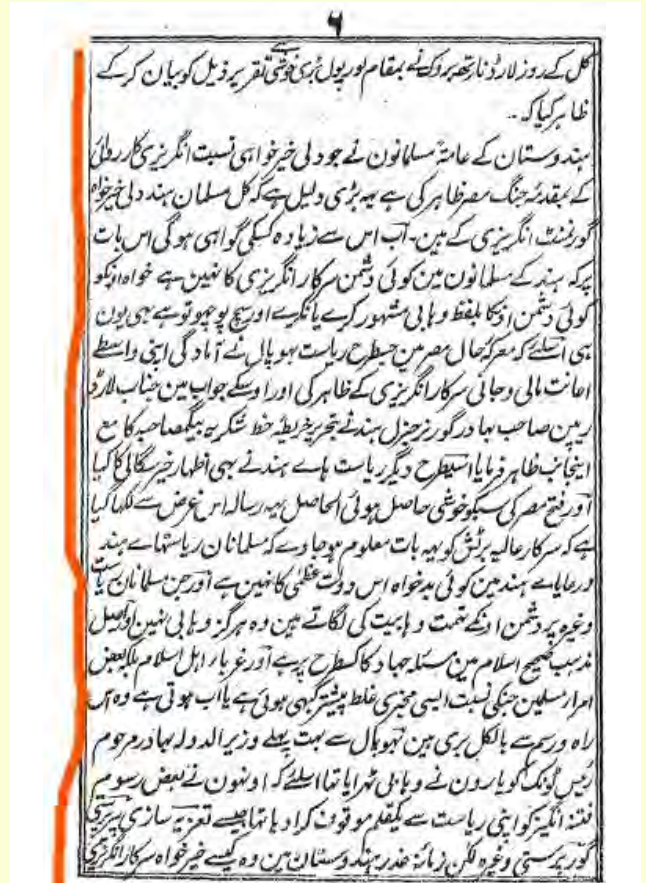 ۶
کل کے روز لارڈ نارتھ بروک نے بمقام لورپول بڑی خوشی سے تقریر ذیل کو بیان کر کے
ظاہر کیا کہ ۔۔
ہندوستان کے عامۂ مسلمانون نے جو دلی خیر خواہی نسبت انگریزی کارروائی
کے بمقدمۂ جنگ مصر ظاہر کی ہے یہہ بڑی دلیل ہے کہ کل مسلمان ہند دلی خیر خواہ
گورنمنٹ انگریزی کے ہین۔ اب اس سے زیادہ کسکی گواہی ہوگی اس بات
پر کہ ہند کے مسلمانون مین کوئی دشمن سرکار انگریزی کا نہین ہے خواہ اونکو
کوئی دشمن اونکا بلفظ وہابی مشہور کرے یا نکرے اور سچ پوچھو تو ہے بہی یون
ہی اسلئے کہ معرکۂ حال مصر مین جسطرح ریاست بہوپال نے آمادگی اپنی واسطے
اعانت مالی و جانی سرکار انگریزی کے ظاہر کی اور اوسکے جواب مین جناب لارڈ
رپن صاحب بہادر گورنر جنرل ہند نے بتحریر خریطہ خط شکریہ بیگم صاحبہ کا مع
اینجانب ظاہر فرمایا اسیطرح دیگر ریاست ہاے ہند نے بہی اظہار خیر سگالی کا کیا
اور فتح مصر کی سبکو خوشی حاصل ہوئی الحاصل یہہ رسالہ اس غرض سے لکہا گیا
ہے کہ سرکار عالیہ برٹش کو یہہ بات معلوم ہو جاوے کہ مسلمانان ریاستہاے ہند
و رعایاے ہند مین کوئی بدخواہ اس دولت عظمی کا نہین ہے اور جن مسلمانان ریاست
وغیرہ پر دشمن اونکے تہمت وہابیت کی لگاتے ہین وہ ہرگز وہابی نہین اور اصل
مذہب صحیح اسلام مین مسئلہ جہاد کا کسطرح پر ہے اور غرباء اہل اسلام بلکہ بعض
امراء مسلمین جنکی نسبت ایسی مخبری غلط پیشتر کبہی ہوئی ہے یا اب ہوتی ہے وہ اس
راہ و رسم سے بالکل بری ہین بہوپال سے بہت پہلے وزیر الدولہ بہادر مرحوم
رئیس ٹونک کو یارون نے وہابی ٹہرایا تہا اسلئے کہ اونہون نے بعض رسوم
فتنہ انگیز کو اپنی ریاست سے یکقلم موقوف کرا دیا تہا جیسے تعزیہ سازی پیر پرستی
گور پرستی وغیرہ لکن زمانۂ غدر ہندوستان مین وہ کیسے خیر خواہ سرکار انگریزی